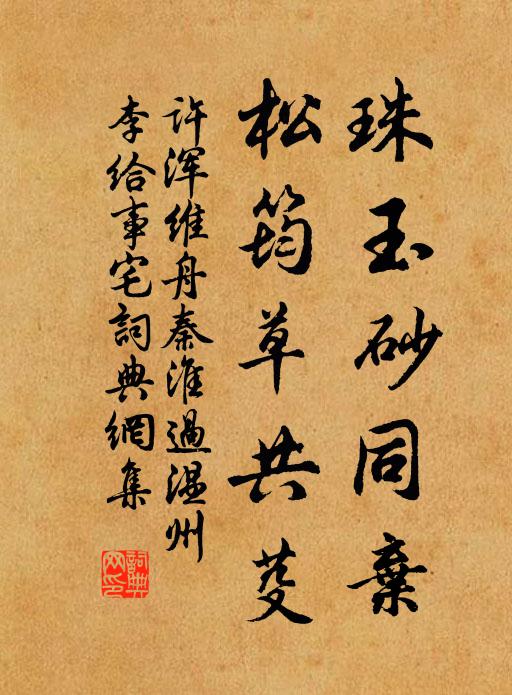 珠玉砂同棄
松筠草共芟
许浑维舟秦淮過温州
李给事宅詞典網集
詞典
网印